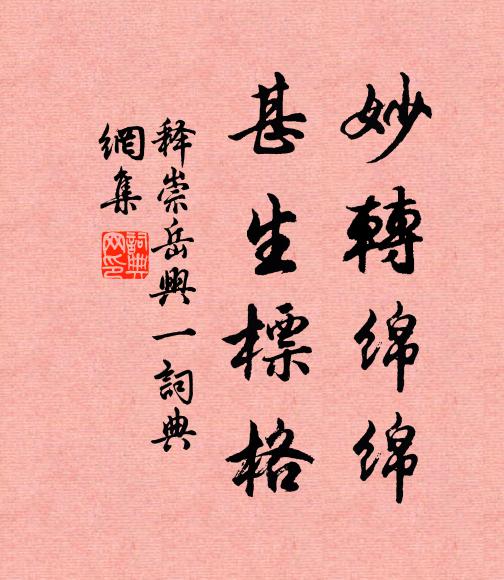 妙轉綿綿
甚生標格
释崇岳興一詞典
網集
詞典
网印